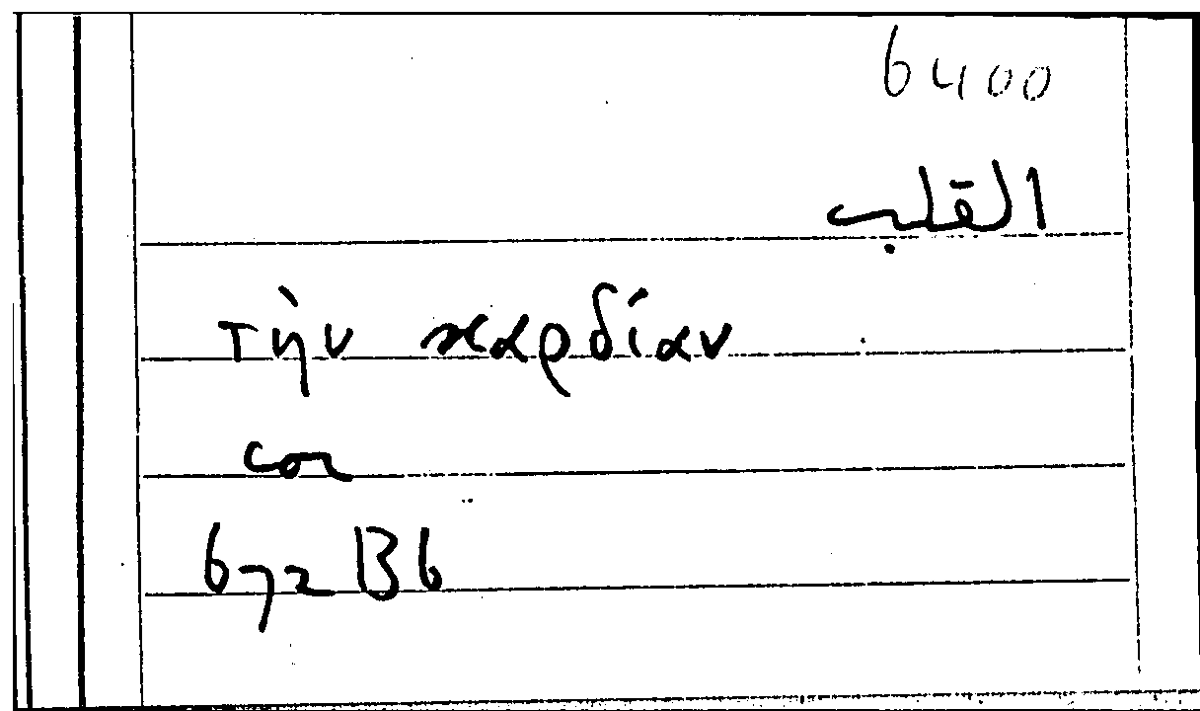 6400
القلب
τὴν καρδίαν
cor
672 B6